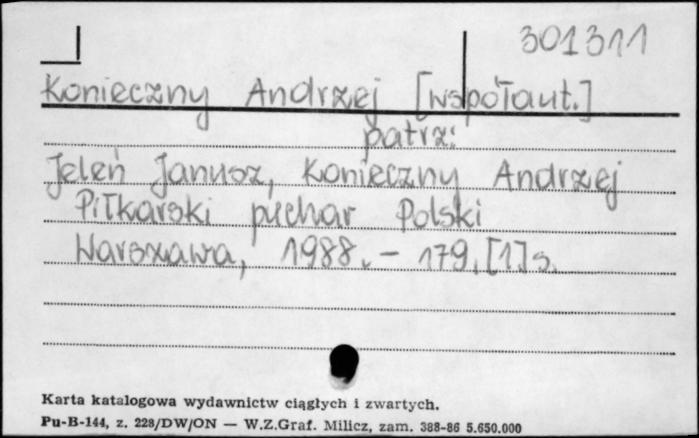 301311
Konieczny Andrzej [współaut.]
patrz:
Jeleń Janusz, Konieczny Andrzej
Piłkarski puchar Polski
Warszawa, 1988. - 179, [1] s.
Karta katalogowa wydawnictw ciągłych i zwartych.
Pu-B-144, z. 228/DW/ON — W.Z.Graf. Milicz, zam. 388-86 5.650.000